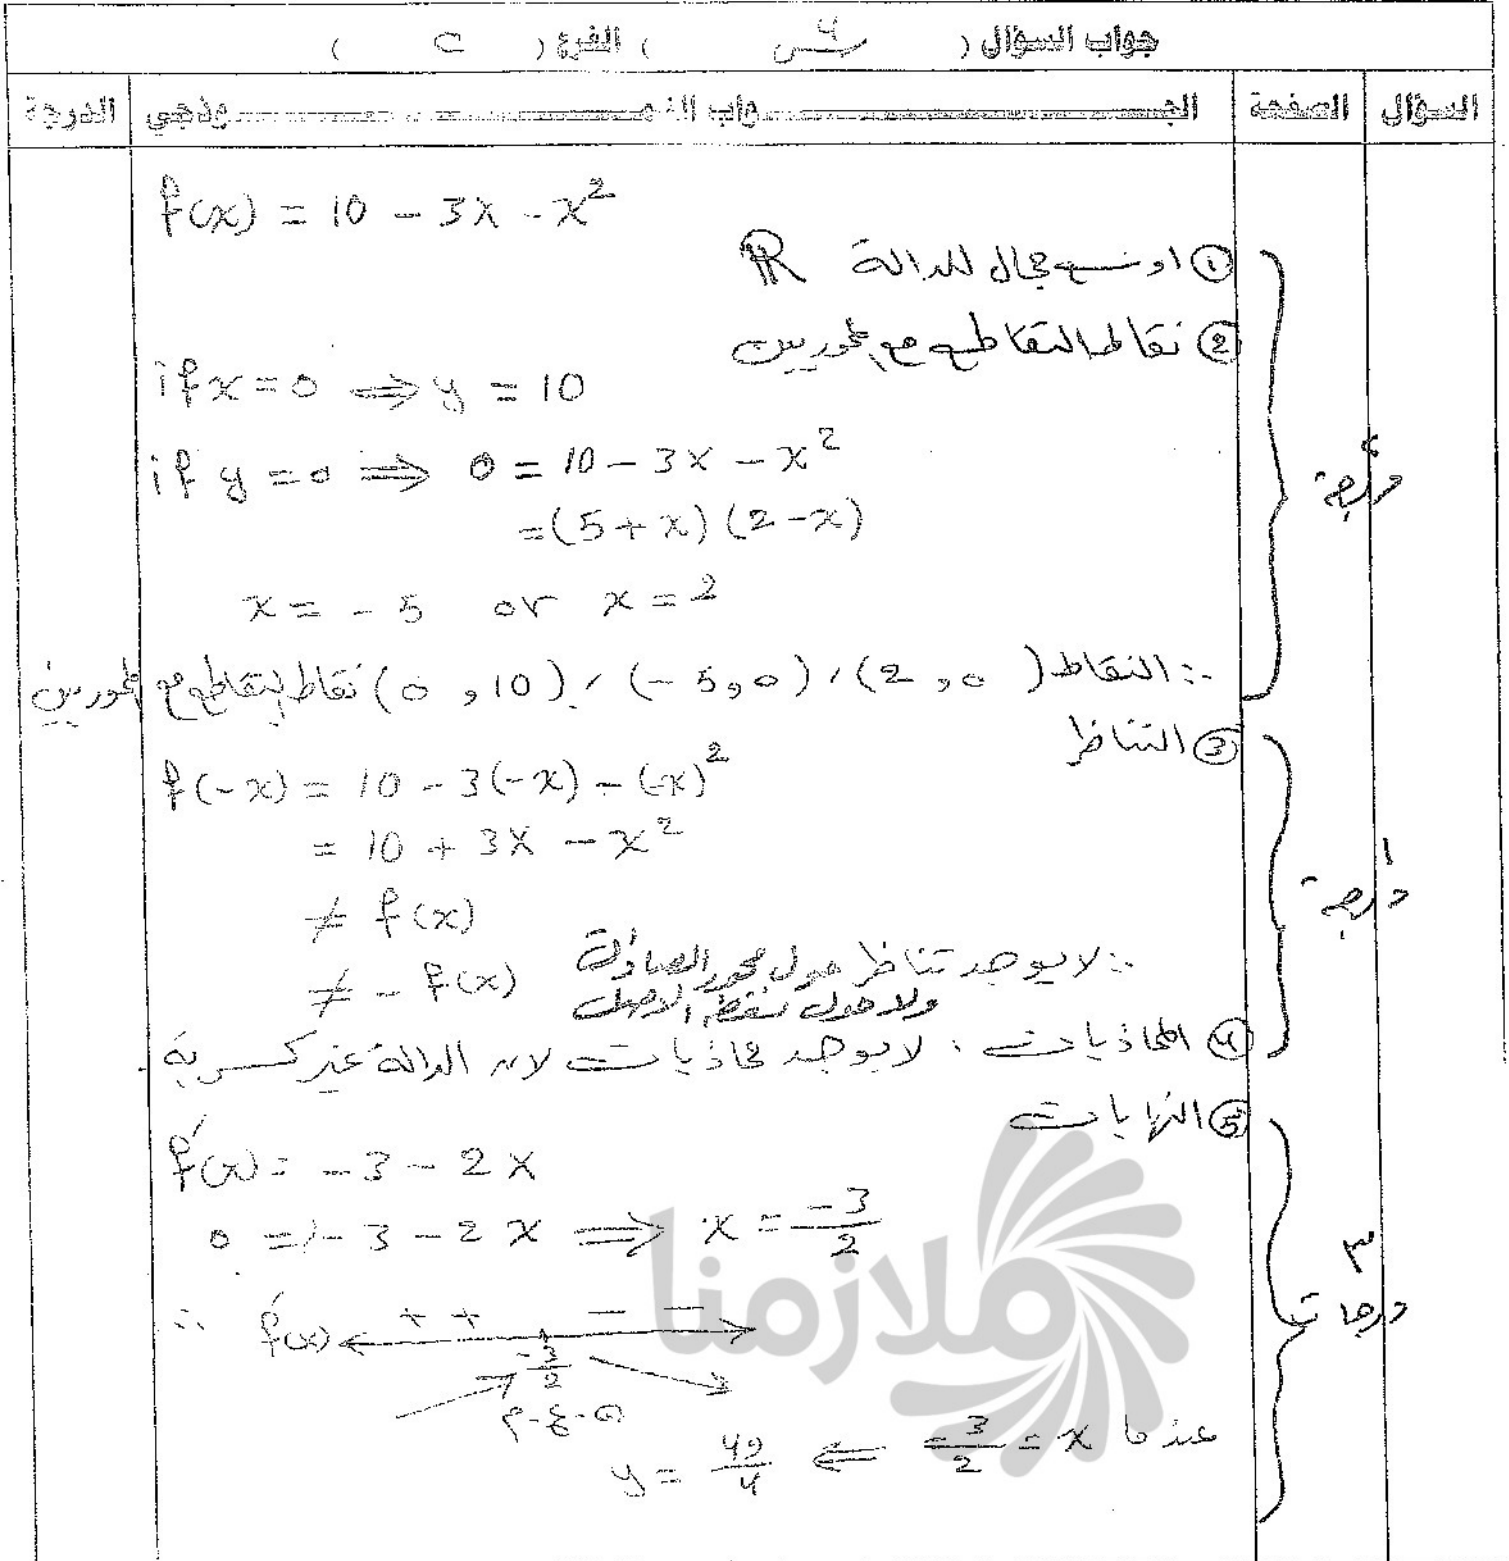 جواب السؤال ( س 4 ) الفرع ( C )
السؤال الصفحة الجـــواب النمـــوذجي الدرجة
f(x) = 10 - 3x - x²
① اوسع مجال للدالة ℝ
② نقاط التقاطع مع المحورين
if x = 0 ⇒ y = 10
if y = 0 ⇒ 0 = 10 - 3x - x²
درجة
= (5 + x) (2 - x)
x = -5 or x = 2
∴ النقاط (2, 0) ، (-5, 0) ، (0, 10) نقاط التقاطع مع المحورين
③ التناظر
f(-x) = 10 - 3(-x) - (-x)²
= 10 + 3x - x²
١ درجة
≠ f(x)
≠ - f(x) ∴ لا يوجد تناظر حول محور الصادات
ولا حول نقطة الاصل
④ المحاذيات : لا يوجد محاذيات لان الدالة غير كسرية
⑤ النهايات
f′(x) = -3 - 2x
0 = -3 - 2x ⇒ x = -3/2
٣ درجات
∴ f′(x) + + - -
-3/2
ن.ع.م
عندما x = -3/2 ⇐ y = 49/4
ملازمنا